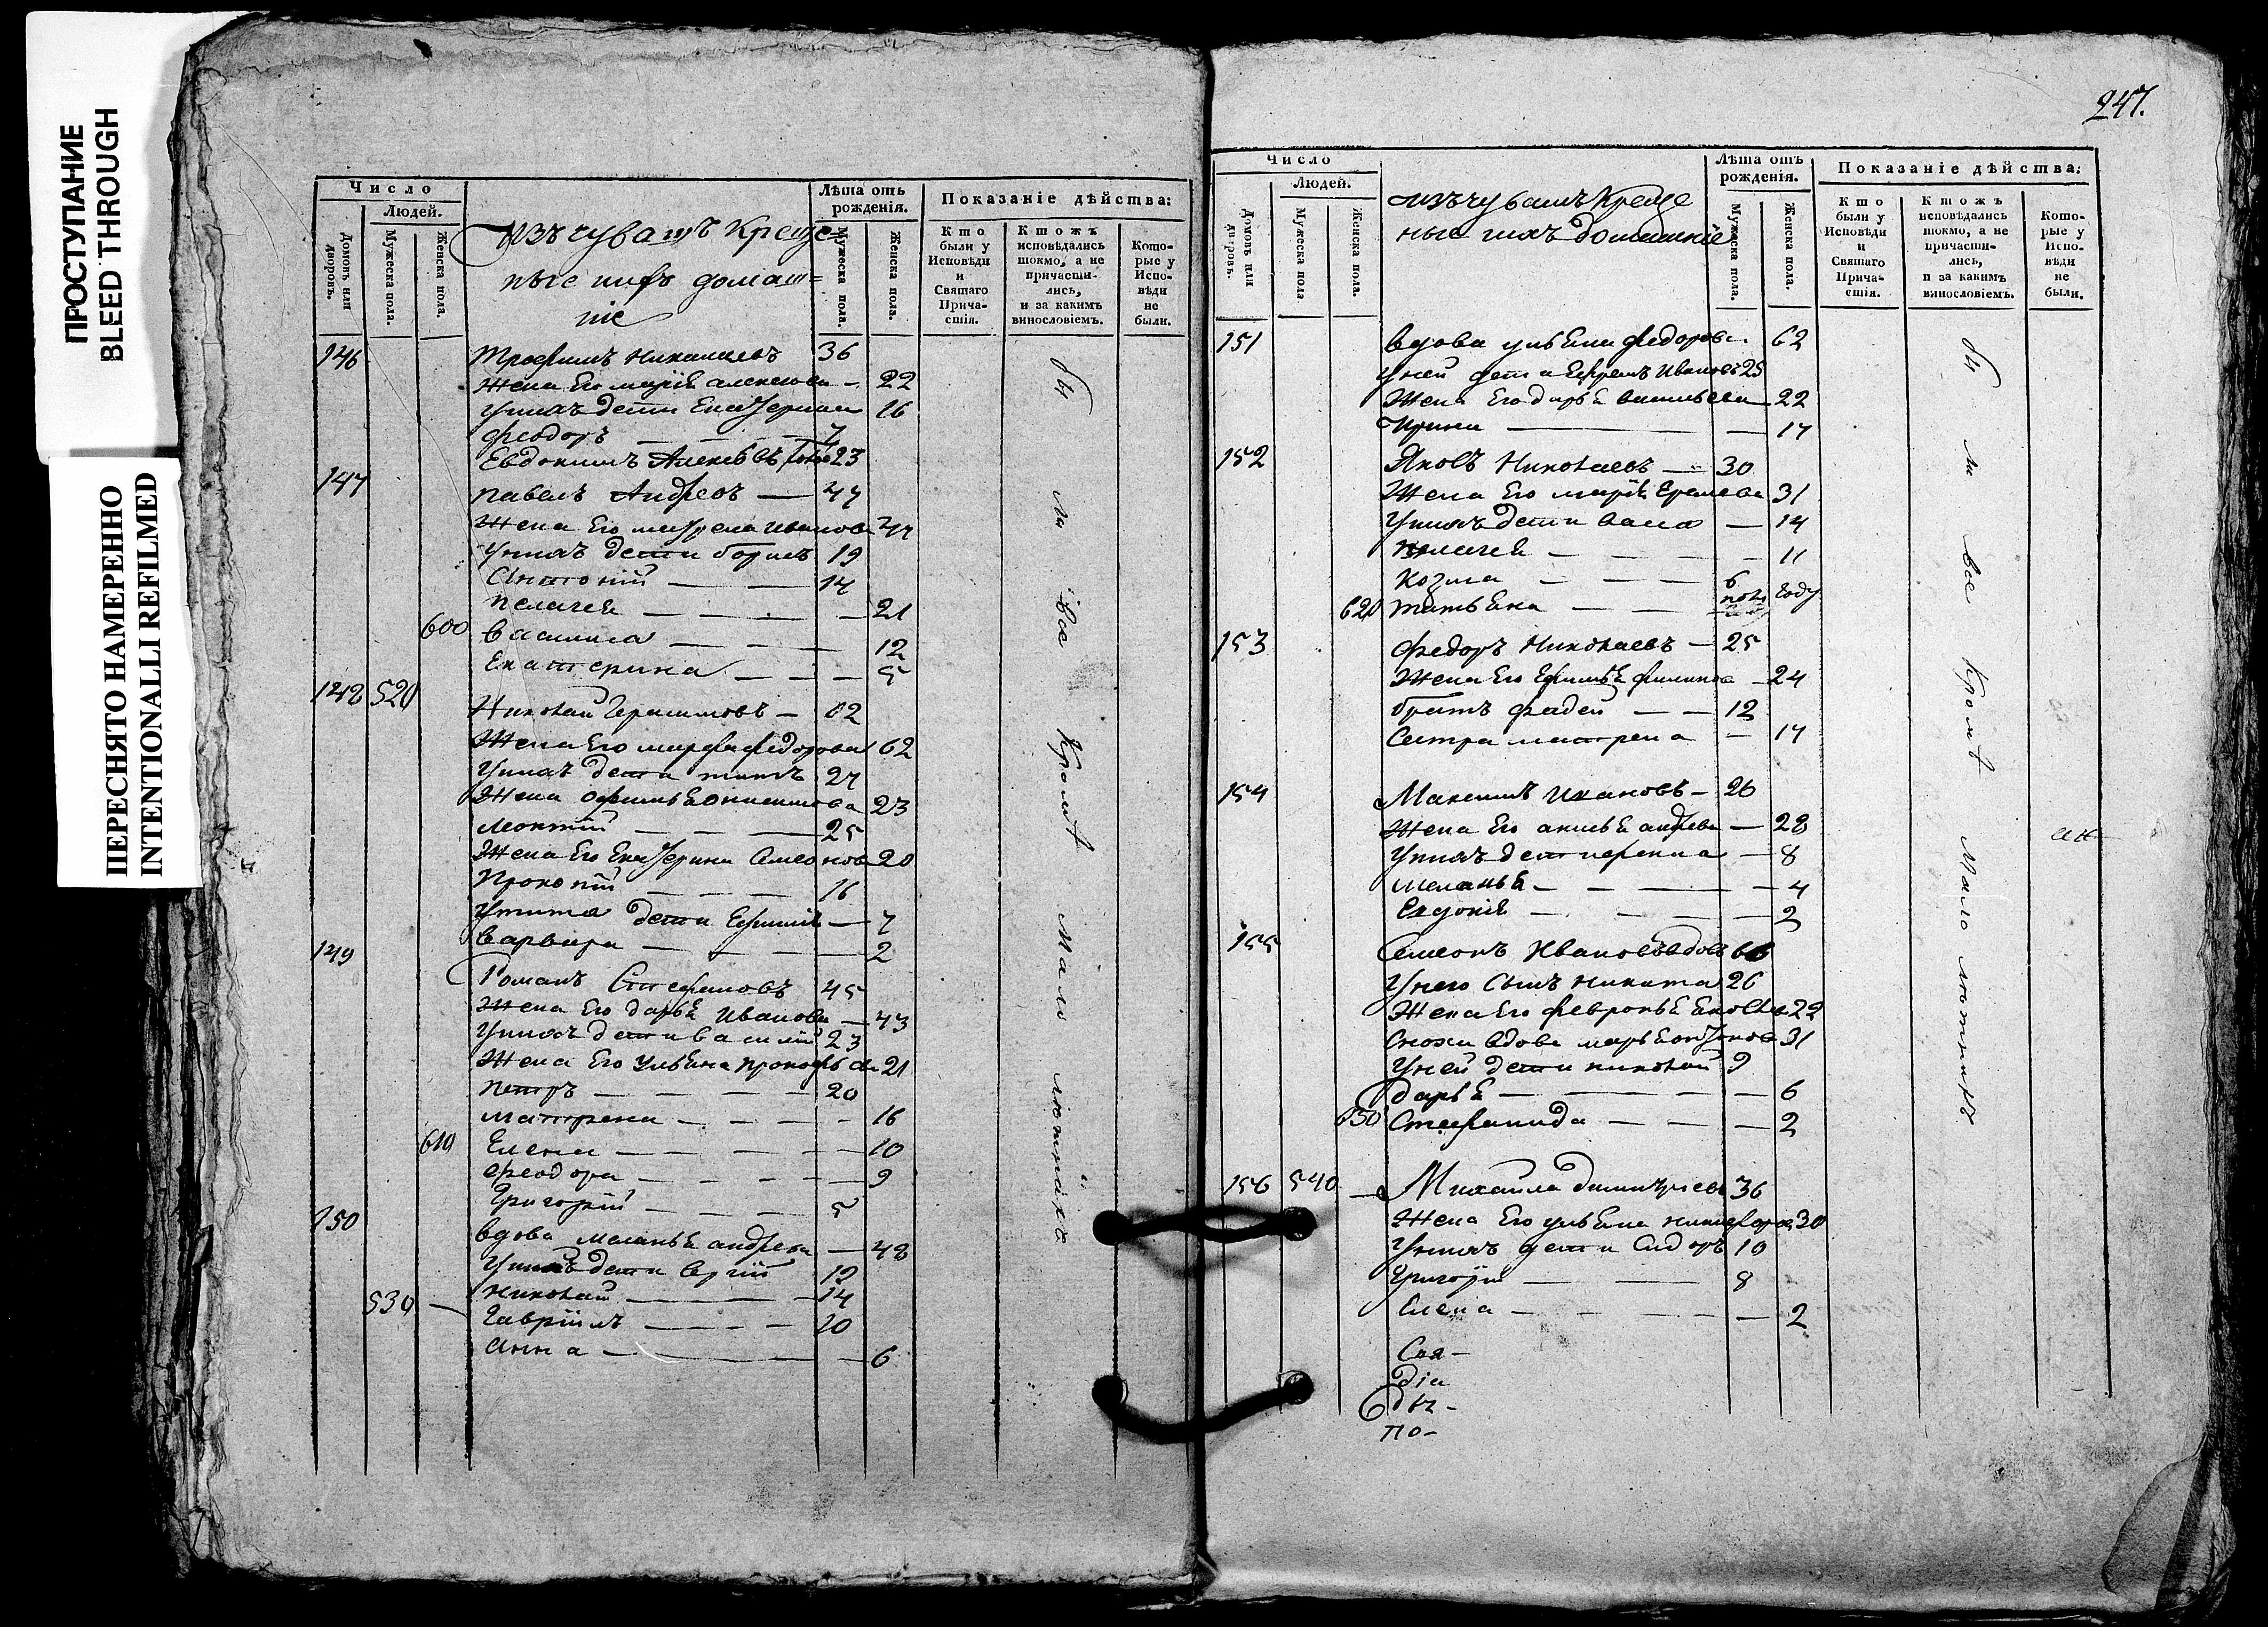 ПРОСТУПАНИЕ
BLEED THROUGH
ПЕРЕСНЯТО НАМЕРЕННО
INTENTIONALLI REFILMED
Число
Людей.
Домовъ или дворовъ.
Мужеска пола.
Женска пола.
изъ чувашъ Креще-
ные ихъ домаш=
ніе
Лѣта отъ рожденія.
Мужеска пола.
Женска пола.
Показаніе дѣйства:
Кто были у Исповѣди и Святаго Прича-стія.
Ктожъ исповѣдались токмо, а не причасти-лись, и за какимъ винословіемъ.
Кото-рые у Испо-вѣди не были.
146 Трофимъ Николаевъ 36
Жена Его марія алексеева 22
У нихъ дети Екатерина 16
феодоръ 7
Евдокимъ Алексѣевъ 23
147 павелъ Андреевъ 47
Жена Его матрена иванова 47
У нихъ дети борисъ 19
Антоній 14
пелагея 21
600 василиса 12
Екатерина 5
148 520 Николай Герасимовъ 62
Жена Его марфа федорова 62
У нихъ дети титъ 27
Жена 23
леонтій 25
Жена Его Екатерина Семенова 20
Прокопій 16
У тита дети Ефимія 7
варвара 2
149 Романъ Стефановъ 45
Жена Его дарья Иванова 43
У нихъ дети василій 23
Жена Его Ульяна прокофьева 21
петръ 20
матрена 16
610 Елена 10
феодора 9
Григорій 5
150 вдова меланья андреева 48
У нихъ дети Сергій 19
530 николай 14
Гавріилъ 10
Анна 6
были все Кромѣ Мало лютнихъ
247.
Число
Людей.
Домовъ или дворовъ.
Мужеска пола
Женска пола.
изъ чувашъ Креще
ные ихъ домашніе
Лѣта отъ рожденія.
Мужеска пола.
Женска пола.
Показаніе дѣйства:
Кто были у Исповѣди и Святаго Прича-стія.
Ктожъ исповѣдались токмо, а не причасти-лись, и за какимъ винословіемъ.
Кото-рые у Испо-вѣди не были.
151 вдова ульяна федорова 62
У ней дети Ефремъ Ивановъ 25
Жена Его дарья васильева 22
Ирина 17
152 Яковъ Николаевъ 30
Жена Его марія 31
У нихъ дети васса 14
пелагея 11
Козма 6
620 татьяна пол году
153 Федоръ Николаевъ 25
Жена Его Ефимья филипова 24
братъ фадей 12
Сестра матрена 17
154 Максимъ Ивановъ 26
Жена Его анисья андреева 28
У нихъ дети 8
меланья 4
Евдокія 2
155 Семенъ Ивановъ вдовъ 66
У него Сынъ никита 26
Жена Его февронья 22
Сноха вдова марья 31
У ней дети николай 9
дарья 6
630 Стефанида 2
156 540 Михайла димитріевъ 36
Жена Его ульяна никифорова 30
У нихъ дети Сидоръ 10
Григорій 8
Елена 2
были все Кромѣ Мало лютнихъ
Свя-
діа
по-